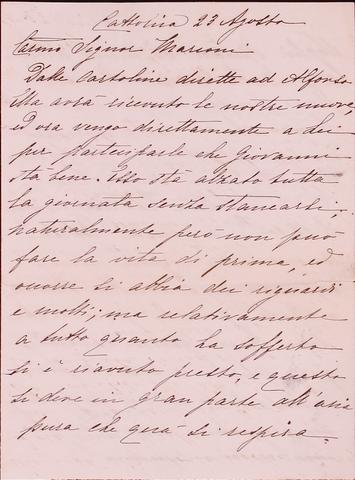 Cattolica 23 Agosto
Carmo Signor Marconi
Dalle cartoline dirette ad Alfonso
Ella avrà ricevuto le nostre nuove,
ed ora vengo direttamente a lei
per parteciparle che Giovanni
stà bene. Esso stà alzato tutta
la giornata senza stancarsi;
naturalmente però non può
fare la vita di prima, ed
occorre si abbia dei riguardi
e molti; ma relativamente
a tutto quanto ha sofferto
si è riavuto presto, e questo
si deve in gran parte all'aria
pura che quà si respira.